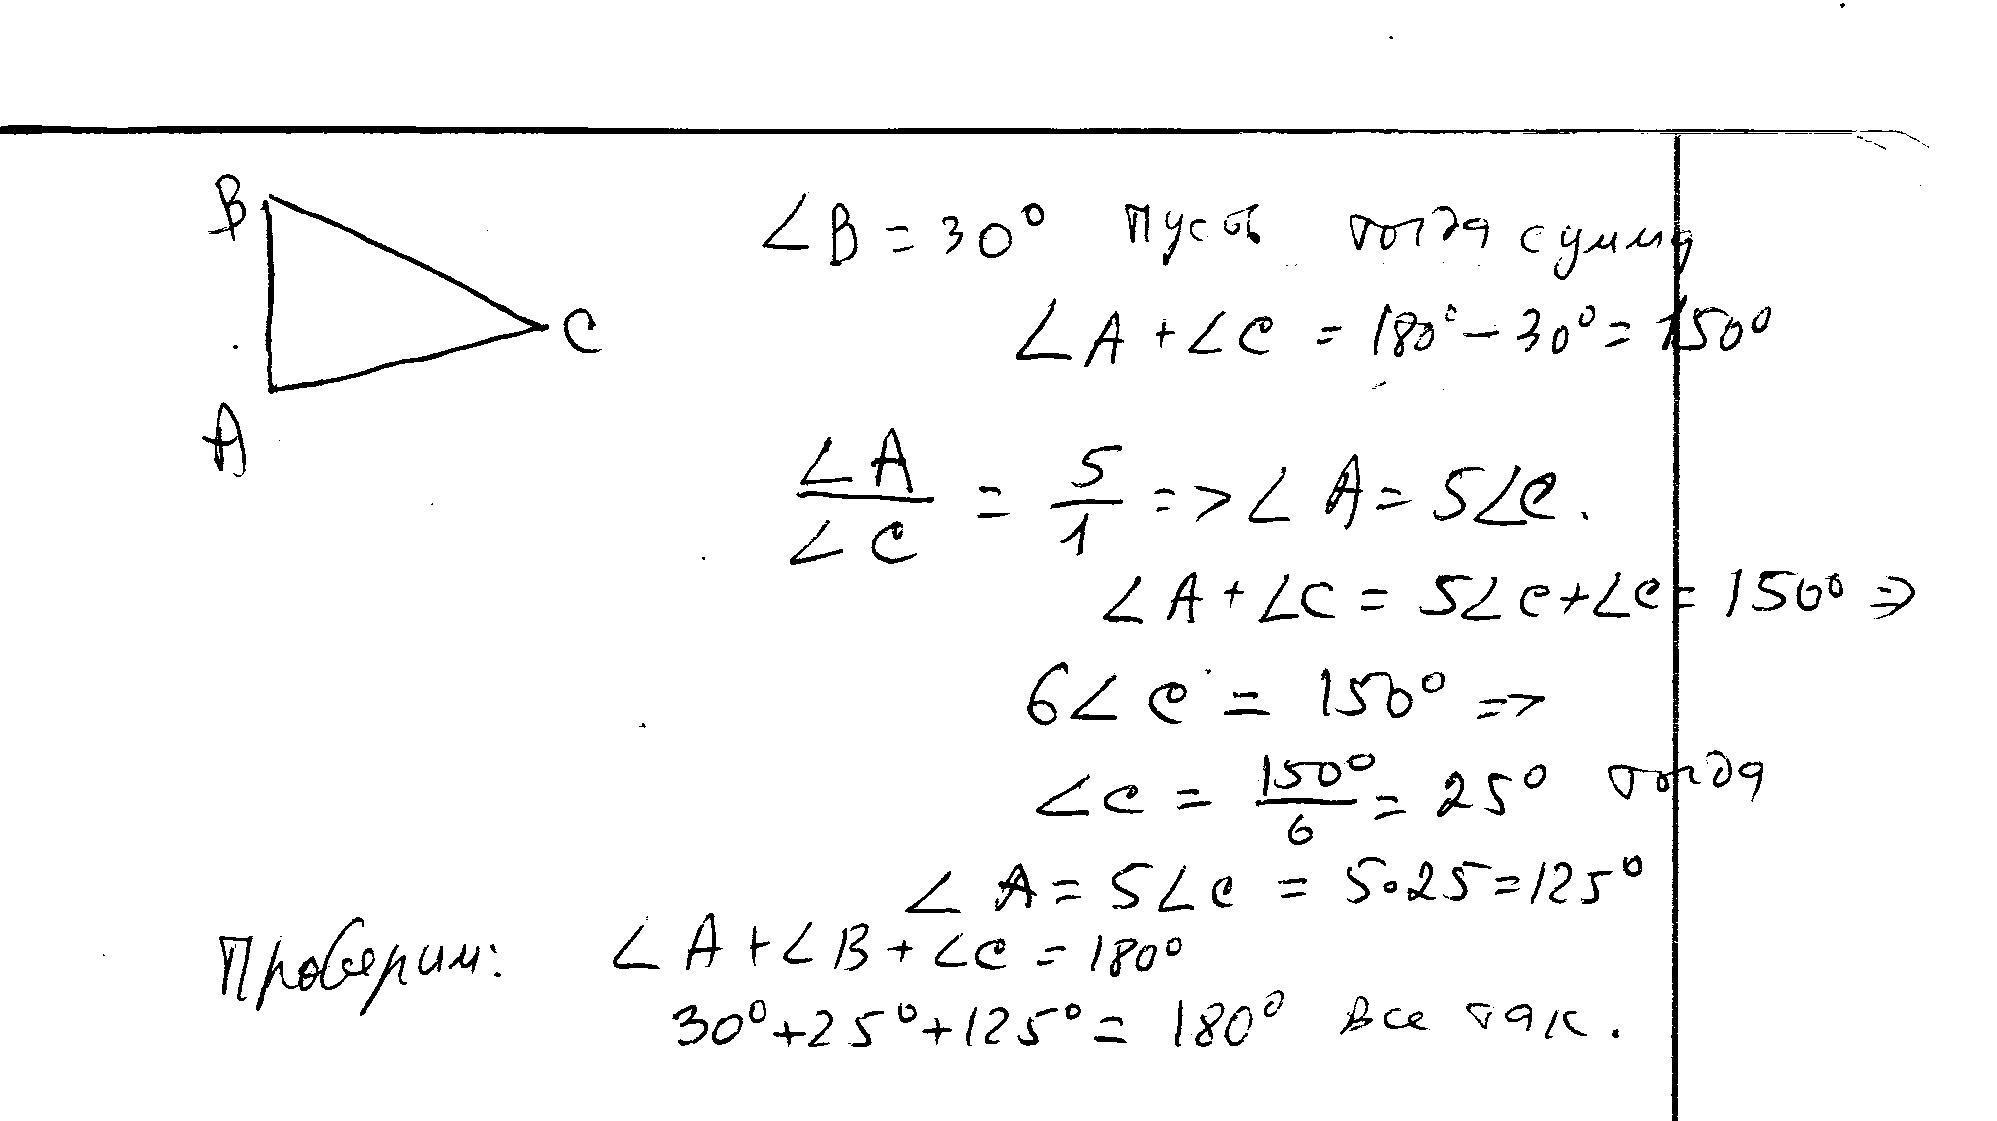 B
∠B = 30° пусть тогда сумма
∠A + ∠C = 180° − 30° = 150°
C
A
∠A/∠C = 5/1 => ∠A = 5∠C.
∠A + ∠C = 5∠C + ∠C = 150° =>
6∠C = 150° =>
∠C = 150°/6 = 25° тогда
∠A = 5∠C = 5·25 = 125°
Проверим: ∠A + ∠B + ∠C = 180°
30° + 25° + 125° = 180° все так.